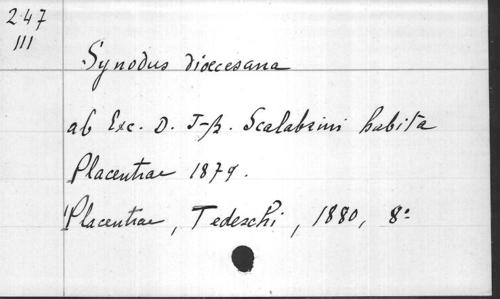 247
III
Synodus dioecesana
ab Exc. D. J-B. Scalabrini habita
Placentiae 1879.
Placentiae, Tedeschi, 1880, 8°